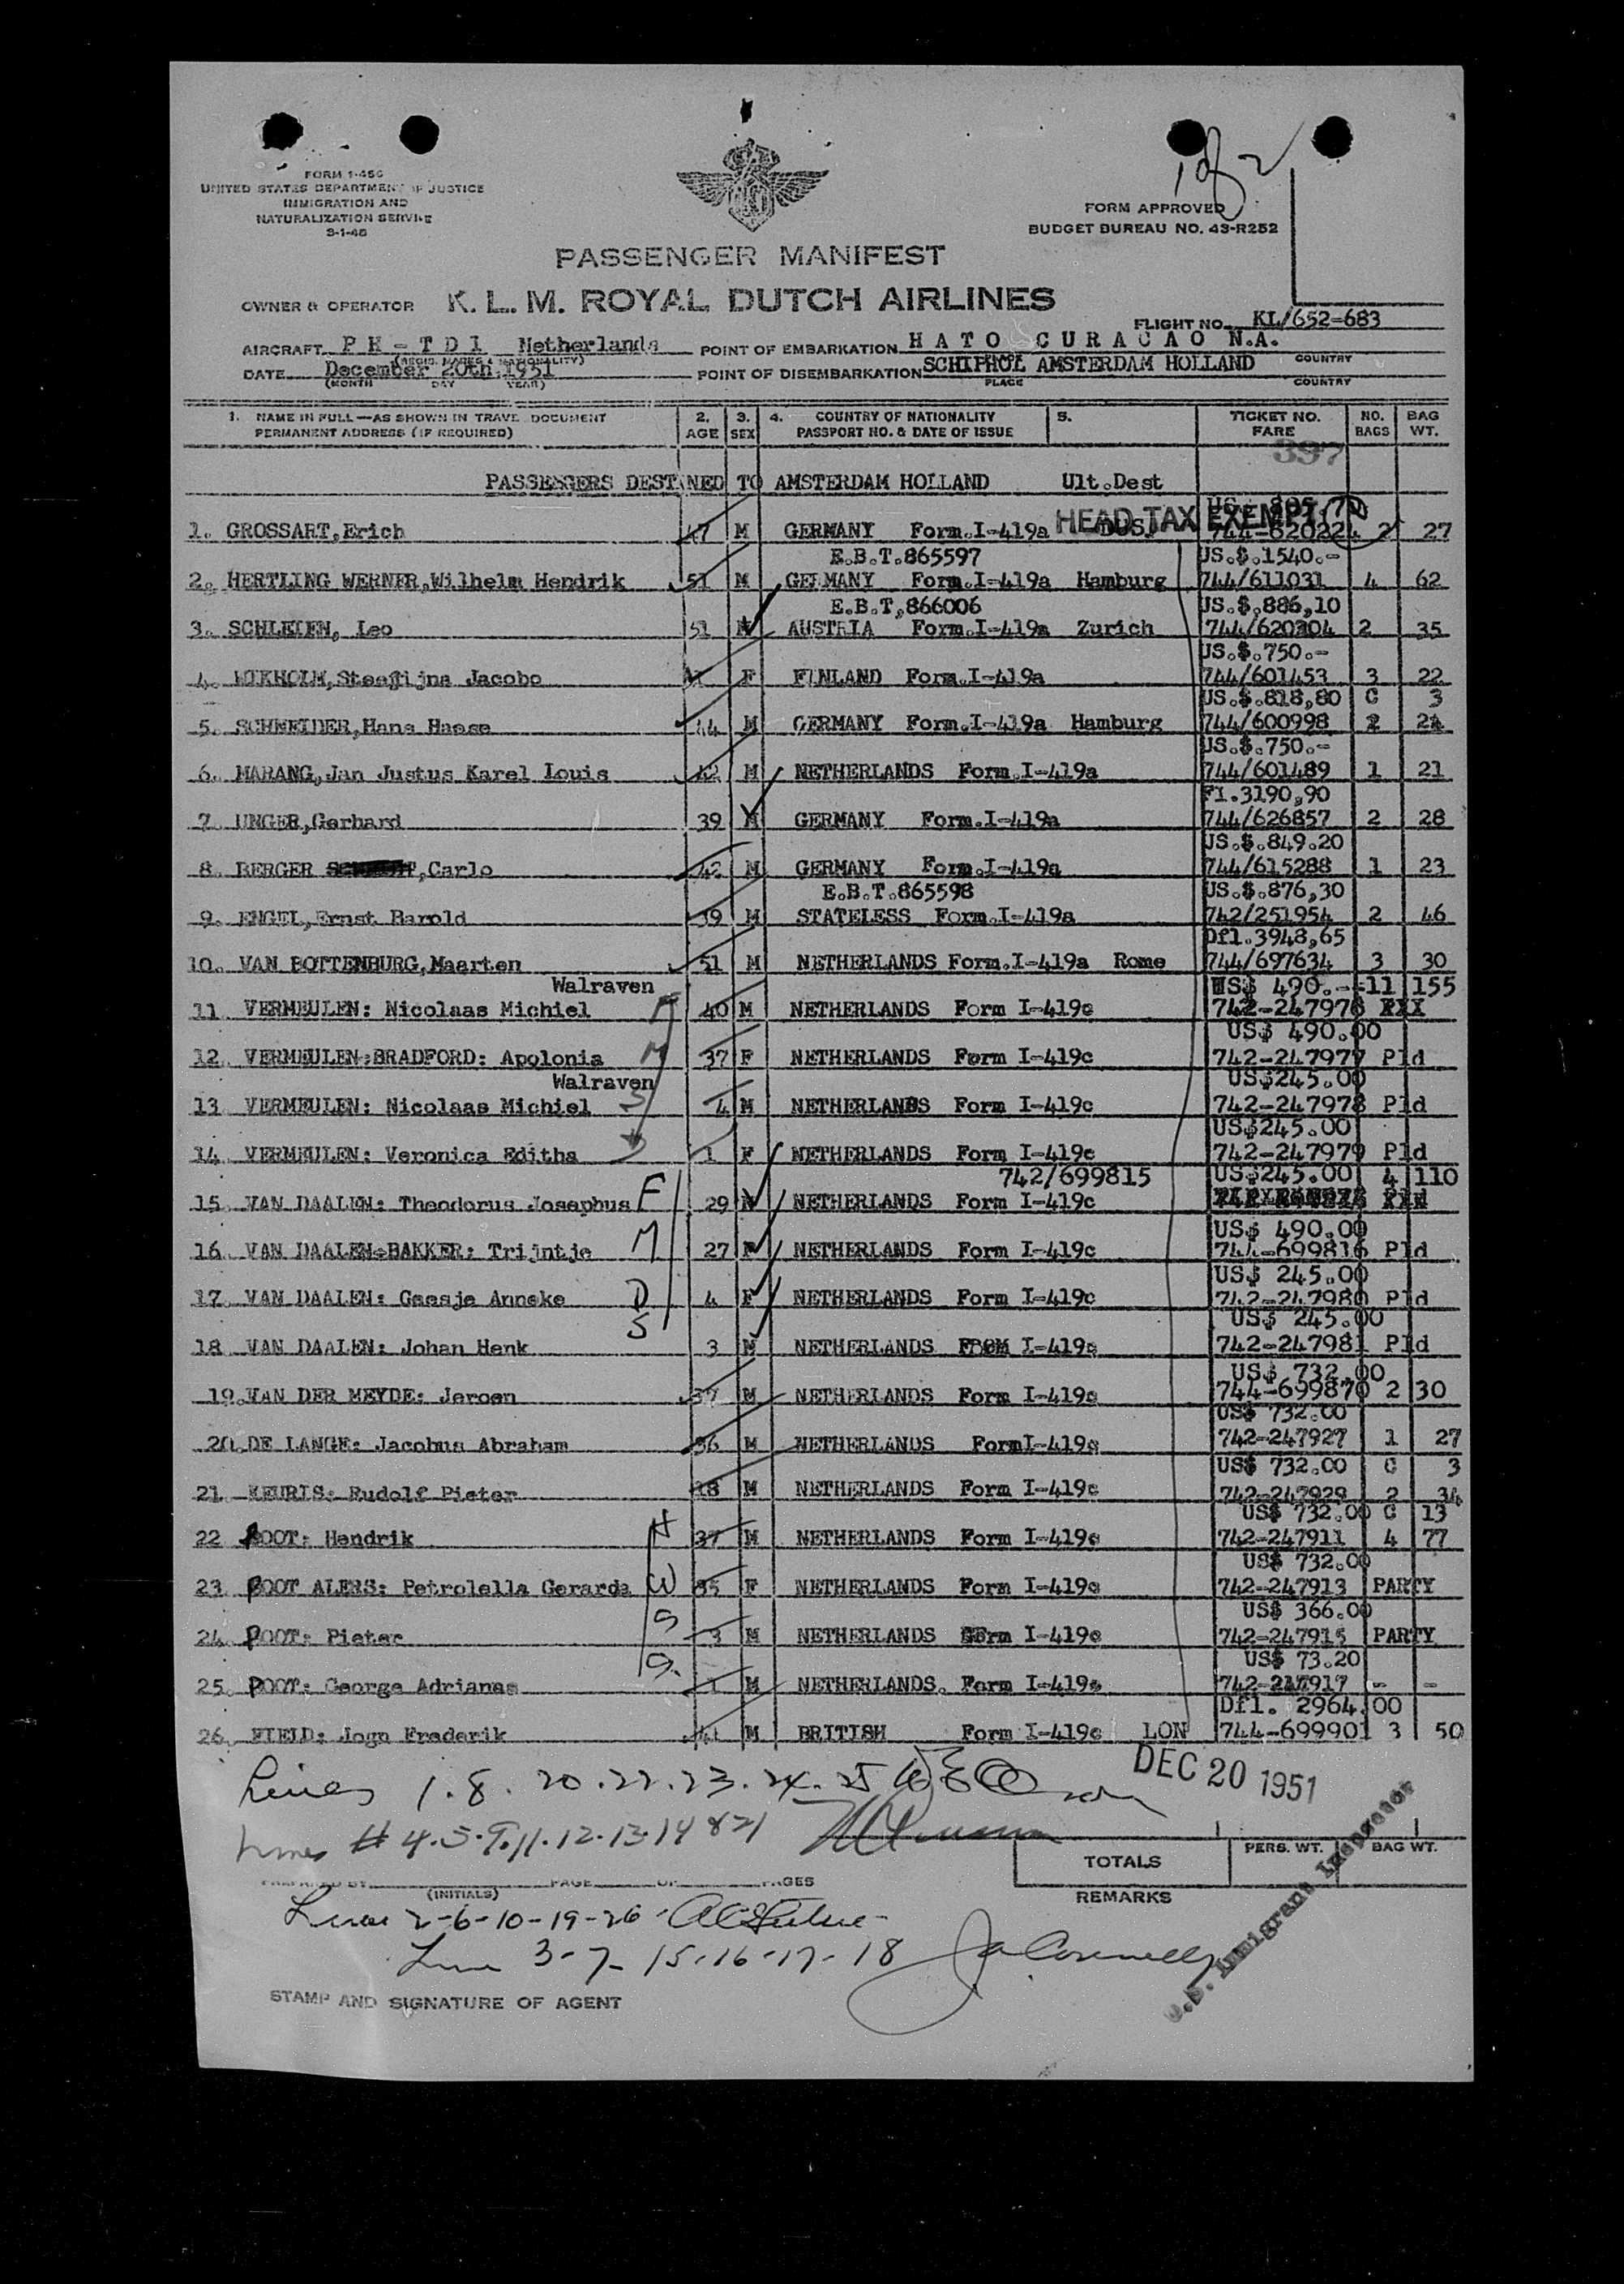 1 of 2
FORM I-466
UNITED STATES DEPARTMENT OF JUSTICE
IMMIGRATION AND
NATURALIZATION SERVICE
3-1-46
FORM APPROVED
BUDGET BUREAU NO. 43-R252
PASSENGER MANIFEST
OWNER & OPERATOR K. L. M. ROYAL DUTCH AIRLINES
FLIGHT NO. KL/652-683
AIRCRAFT P H - T D I Netherlands POINT OF EMBARKATION H A T O C U R A C A O N.A.
(REGIS. MARKS & NATIONALITY) PLACE COUNTRY
DATE December 20th.1951 POINT OF DISEMBARKATION SCHIPHOL AMSTERDAM HOLLAND
(MONTH DAY YEAR) PLACE COUNTRY
1. NAME IN FULL—AS SHOWN IN TRAVE DOCUMENT 2. 3. 4. COUNTRY OF NATIONALITY 5. TICKET NO. NO. BAG
PERMANENT ADDRESS (IF REQUIRED) AGE SEX PASSPORT NO. & DATE OF ISSUE FARE BAGS WT.
397
PASSENGERS DESTINED TO AMSTERDAM HOLLAND Ult.Dest
HEAD TAX EXEMPT
1. GROSSART,Erich 47 M GERMANY Form.I-419a DUS. 744-62022 2 27
E.B.T.865597 US.$.1540.-
2. HERTLING WERNER,Wilhelm Hendrik 51 M GERMANY Form.I-419a Hamburg 744/611031 4 62
E.B.T,866006 US.$.886,10
3. SCHLEIEN, Leo 51 M AUSTRIA Form.I-419a Zurich 744/620304 2 35
US.$.750.-
4. Jacobo F FINLAND Form.I-419a 744/601453 3 22
US.$.818,80 C 3
5. SCHNEIDER,Hans Haese 44 M GERMANY Form.I-419a Hamburg 744/600998 2 24
US.$.750.-
6. MARANG,Jan Justus Karel Louis 42 M NETHERLANDS Form.I-419a 744/601489 1 21
Fl.3190,90
7 UNGER,Gerhard 39 M GERMANY Form.I-419a 744/626857 2 28
US.$.849.20
8. BERGER ,Carlo 42 M GERMANY Form.I-419a 744/615288 1 23
E.B.T.865598 US.$.876,30
9. ENGEL,Ernst Harold 39 M STATELESS Form.I-419a 742/251954 2 46
Dfl.3948,65
10. VAN BOTTENBURG,Maarten 51 M NETHERLANDS Form.I-419a Rome 744/697634 3 30
Walraven US$ 490.- 11 155
11 VERMEULEN: Nicolaas Michiel F 40 M NETHERLANDS Form I-419c 742-247976 XXX
US$ 490.00
12 VERMEULEN:BRADFORD: Apolonia M 37 F NETHERLANDS Form I-419c 742-247977 Pld
Walraven US$245.00
13 VERMEULEN: Nicolaas Michiel S 4 M NETHERLANDS Form I-419c 742-247978 Pld
US$245.00
14 VERMEULEN: Veronica Editha D 1 F NETHERLANDS Form I-419c 742-247979 Pld
742/699815 US$245.00 4 110
15 VAN DAALEN: Theodorus Josephus F 29 M NETHERLANDS Form I-419c
US$ 490.00
16 VAN DAALEN:BAKKER: Trijntje M 27 F NETHERLANDS Form I-419c 744-699816 Pld
US$ 245.00
17 VAN DAALEN: Geesje Anneke D 4 F NETHERLANDS Form I-419c 742-247980 Pld
S US$ 245.00
18 VAN DAALEN: Johan Henk 3 M NETHERLANDS I-419c 742-247981 Pld
US$ 732.00
19.VAN DER MEYDE: Jeroen 37 M NETHERLANDS Form I-419c 744-699870 2 30
US$ 732.00
20.DE LANGE: Jacobus Abraham 36 M NETHERLANDS FormI-419c 742-247927 1 27
US$ 732.00 C 3
21 KEURIS: Rudolf Pieter 28 M NETHERLANDS Form I-419c 742-247929 2 34
US$ 732.00 C 13
22 POOT: Hendrik H 37 M NETHERLANDS Form I-419c 742-247911 4 77
US$ 732.00
23 POOT ALENS: Petrolella Gerarda W 35 F NETHERLANDS Form I-419c 742-247913 PARTY
US$ 366.00
24 POOT: Pieter S 3 M NETHERLANDS Form I-419c 742-247915 PARTY
US$ 73.20
25. POOT: George Adrianas S. 1 M NETHERLANDS. Form I-419c 742-247917 - -
Dfl. 2964.00
26 FIELD: Jogn Frederik 41 M BRITISH Form I-419c LON 744-699901 3 50
DEC 20 1951
Lines 1. 8. 20. 22. 23. 24. 25
Lines # 4. 5. 9. 11. 12. 13. 14 & 21
TOTALS PERS. WT. BAG WT.
PREPARED BY (INITIALS) PAGE OF PAGES
REMARKS
Lines 2-6-10-19-26
Line 3-7-15-16-17-18
U.S. Immigrant Inspector
STAMP AND SIGNATURE OF AGENT